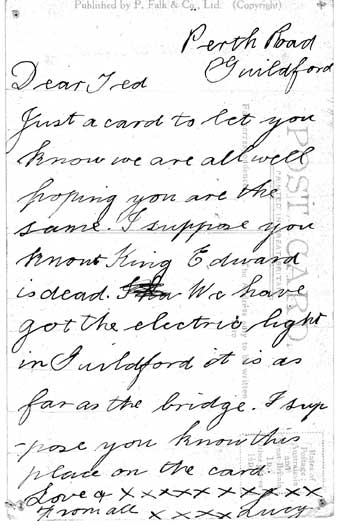 Published by P. Falk & Co., Ltd. (Copyright)
Perth Road
Guildford
Dear Ted
Just a card to let you
know we are all well
hoping you are the
same. I suppose you
know King Edward
is dead. We have
got the electric light
in Guildford it is as
far as the bridge. I sup
-pose you know this
place on the card.
Love & x x x x x x x x x
From all x x x x Lucy
POST CARD